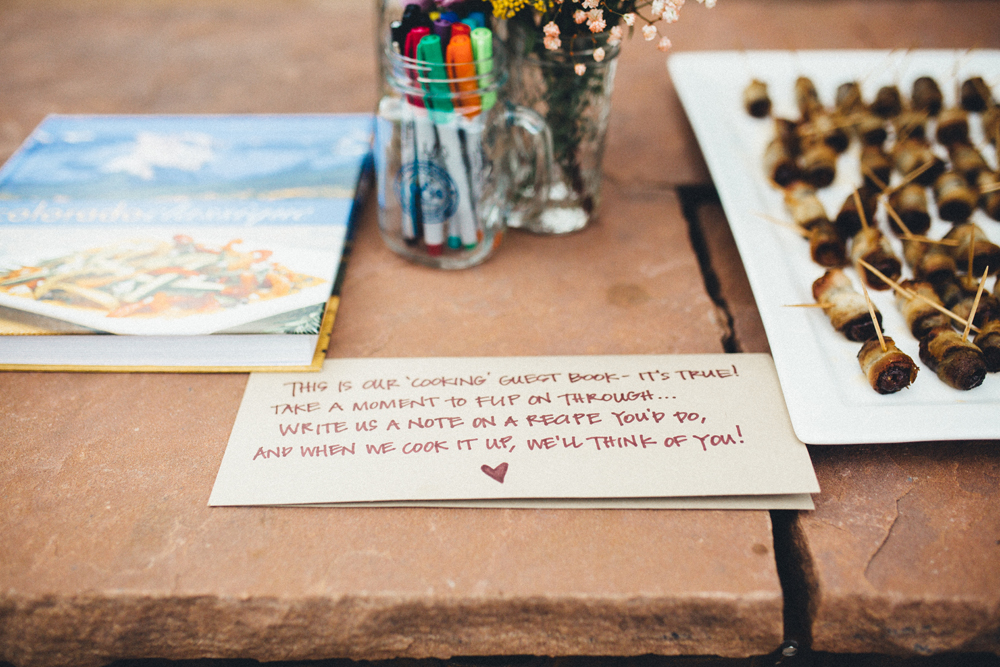 THIS IS OUR 'COOKING' GUEST BOOK - IT'S TRUE!
TAKE A MOMENT TO FLIP ON THROUGH...
WRITE US A NOTE ON A RECIPE YOU'D DO,
AND WHEN WE COOK IT UP, WE'LL THINK OF YOU!